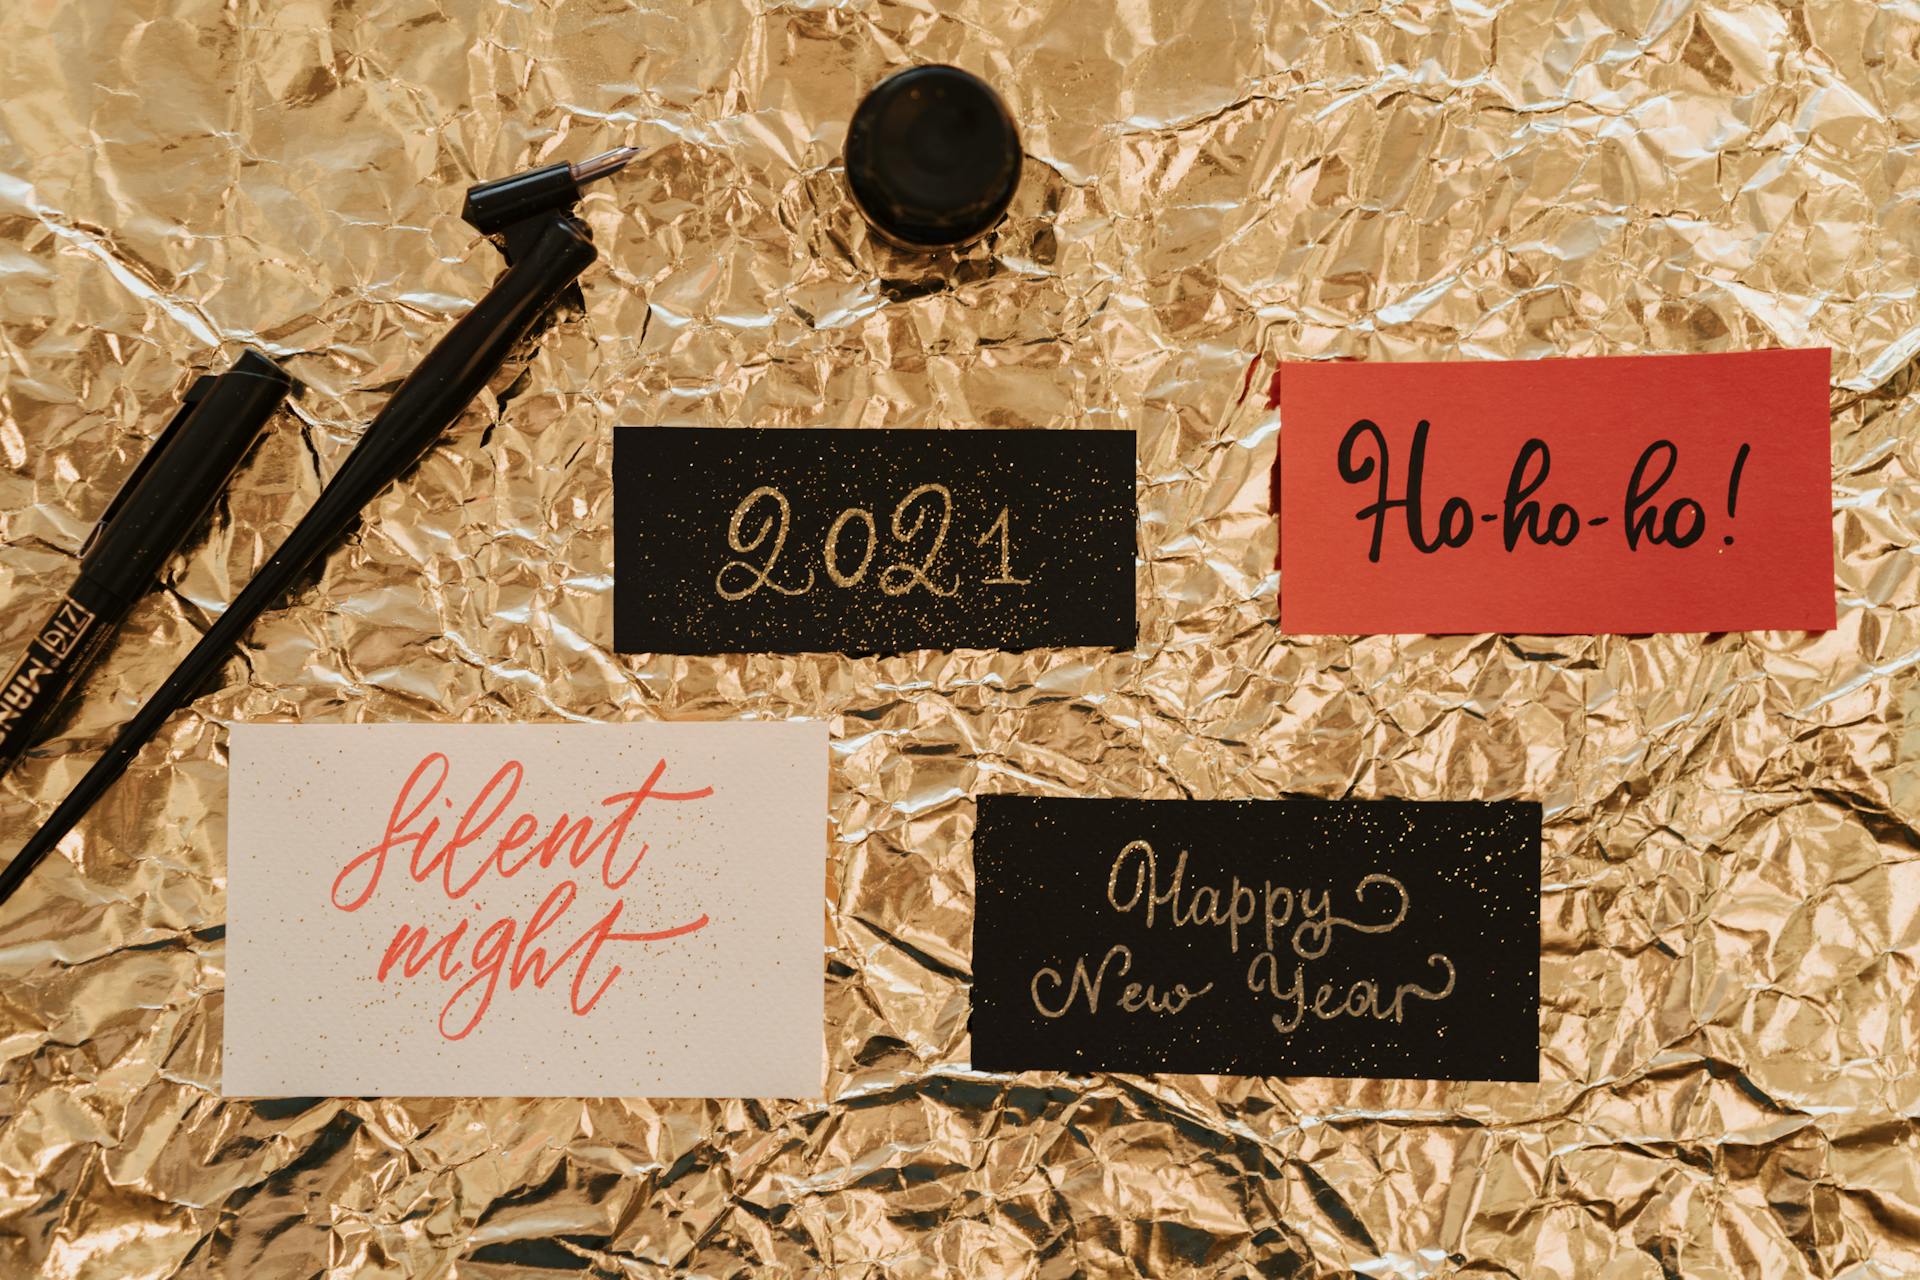 2021
Ho-ho-ho!
ZIG
silent
night
Happy
New Year